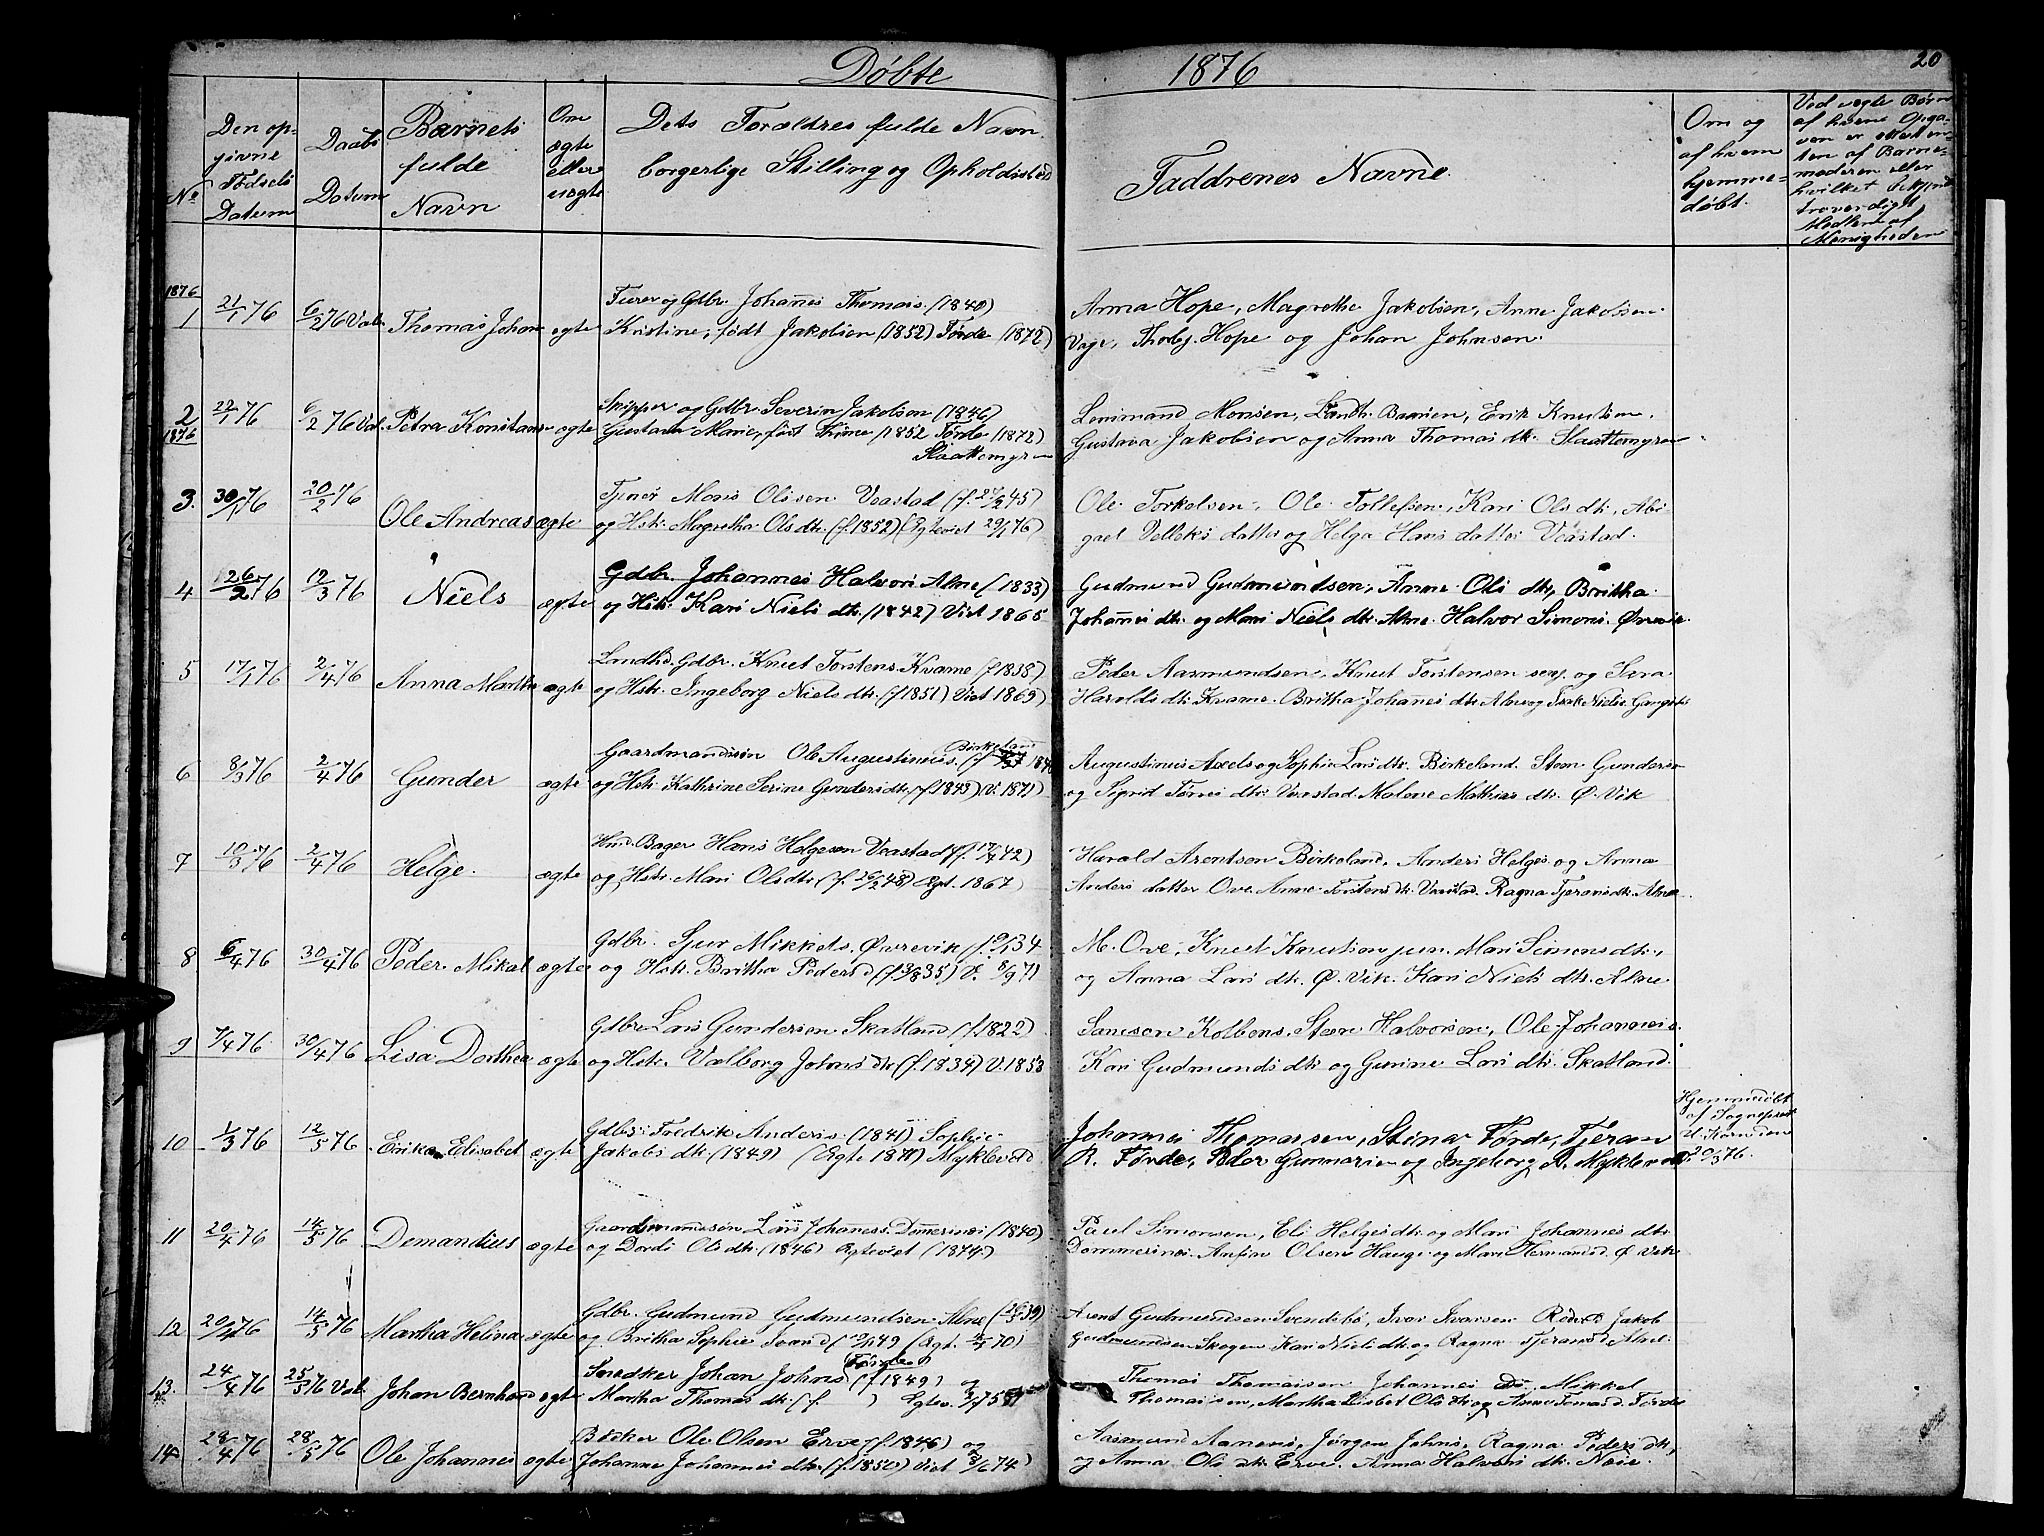 Døbte
1876
20
No
Den op-
givne
Fødsels
Datum
Daabs
Datum
Barnets
fulde
Navn
Om
ægte
eller
uægte
Dets Forældres fulde Navn
borgerlige Stilling og Opholdssted
Faddrenes Navne.
Om og
af hvem
hjemme-
døbt.
Ved uægte Børn
af hvem Opga-
ven er
af Barne-
moderen eller
hvilket
troverdigt
Medlem af
Menigheden
1876
1 21/1 76 6/2 76 Val. Thomas Johan ægte
og Gdbr. Johannes Thomas. (1840)
Kristine, født Jakobsen (1852) Førde (1872)
Anna Hope, Magrethe Jakobsen, Anne Jakobsen
Vage, Thorbj. Hope og Johan Johnsen.
2 22/1 76 6/2 76 Val. Petra Konstanse ægte
1876
Skipper og Gdbr Severin Jakobsen (1846)
Gustava Marie, født Thime (1852 Førde (1872)
Slaattemyren
Lensmand Monsen, Landh. Baarsen, Erik Knutsen.
Gustava Jakobsen og Anna Thomas dtr. Slaattemyren
3. 30/1 76 20/2 76 Ole Andreas ægte
Tjener Mons Olssen Veastad (f. 27/2 45)
og Hstr. Magretha Ols dtr. (f. 1852) (Egteviet 29/1 76)
Ole Torkelsen, Ole Tollefsen, Kari Ols dtr, Abi-
gael Velleks datter og Helga Hans datter Veastad.
4 26/2 76 12/3 76 Niels ægte
Gdbr. Johannes Halvors Alne (1833)
og Hstr. Kari Niels dtr. (1842) Viet 1865
Gudmund Gudmundsen, Anne Ols dtr, Britha
Johannes dtr. og Mari Niels dtr. Alne. Halvor Simons. Øvrevik.
5 17/1 76 2/4 76 Anna Martha ægte
Landhd. Gdbr. Knut Torstens. Kvame (f. 1838)
og Hstr. Ingeborg Niels dtr. (f. 1851) Viet 1869)
Peder Aasmundsen, Knut Torstensen sen. og Sara
Harolds dtr. Kvame. Britha Johannes dtr. Alne og Isak Niels. Gangstø
6 8/3 76 2/4 76 Gunder ægte
Gaardmandssøn Ole Augustinus. Birkeland
og Hstr. Kathrine Serine Gunders dtr. (f. 1843) (V. 1871)
Augustinus Axels og Sophie Lars dtr. Birkeland. Sten Gunderse
og Sigrid Tørres dtr. Veastad. Malene Mathias dtr. Ø. Vik
7 10/3 76 2/4 76 Helge. ægte
Hmd. Bager Hans Helgesen Veastad (f. 17/7 42)
og Hstr. Mari Ols dtr. (f. 26/2 48) Egt. 1867)
Harald Arentsen Birkeland, Anders Helges. og Anna
Anders datter Ove. Anne Torstens dtr. Veastad. Ragna Tjerans dtr. Alne.
8 6/4 76 30/4 76 Peder Mikal ægte
Gdbr. Sjur Mikkels. Øvrevik (f. 9/1 34
og Hstr. Britha Peders d (f. 3/8 35) V. 8/9 71
M. Ove, Knut Knutsen jun. Mari Simons dtr.,
og Anna Lars dtr. Ø. Vik. Kari Niels dtr. Alne.
9 7/4 76 30/4 76 Lisa Dorthea ægte
Gdbr. Lars Gundersen Skatland (f. 1822)
og Hstr. Valborg Johns dtr. (f. 1834) V. 1853
Samson Kolbens, Steen Halvorsen, Ole Johannes.
Kari Gudmunds dtr og Gurine Lars dtr. Skatland.
10 1/3 76 12/5 76 Erika Elisabet ægte
Gdbr: Fredrik Anders. (1841) Sophie
Jakobs dtr. (1849) (Egte 1871) Myklevold
Johannes Thomassen, Stina Førde, Tjeran
R. Førde, Peder Gunnarsen og Ingeborg R. Myklevold.
Hjemmedøbt
af Sogneprest
20/3 76.
11 20/4 76 14/5 76 Demandius ægte
Gaardmandssøn Lars Johaness. Dommersnes (1840)
og Dordi Ols dtr. (1846) Egteviet (1874)
Paul Simonsen, Eli Helges dtr. og Mari Johannes dtr
Dommersnes. Anfin Olsen Hauge og Mari Hermands d. Ø. Vik
12 20/4 76 14/5 76 Martha Helina ægte
Gdbr. Gudmund Gudmundsen Alne
og Britha Sophie Ivars d
Arent Gudmundsen Svendsbø, Ivar Ivarsen Jakob
Gudmundsen Skogen Kari Niels dtr. og Ragna Tjerans d. Alne.
13. 24/4 76 25/5 76 Val. Johan Bernhard ægte
Snedker Johan Johns Førde (f. 1849) og
Martha Thomas dtr. (f. ) Egtev.
Thomas Thomassen, Johannes do, Mikkel
Thomassen, Martha Lisbet Ols dtr og Anne Tomas d. Førde
14 28/4 76 28/5 76 Ole Johannes ægte
Bødker Ole Olsen Erve (f. 1846) og
Johanne Johannes dtr. (f. 1850) Viet 3/6 74)
Aasmund Aanens, Jørgen Johns, Ragna Peders dtr,
og Anna Ols dtr. Erve. Anna Halvors dtr. Næse.